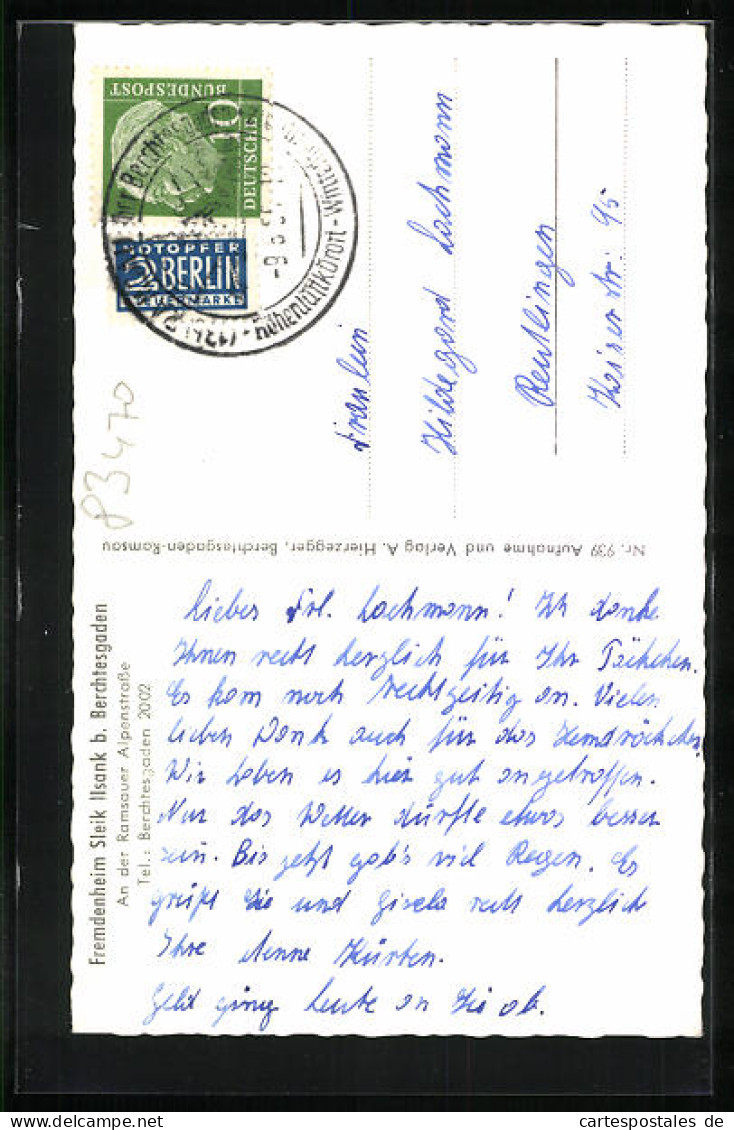 DEUTSCHE
BUNDESPOST
10
NOTOPFER
2 BERLIN
STEUERMARKE
Höhenluftkurort
Fräulein
Hildegard Lachmann
Reutlingen
Kaiserstr. 95
83470
Nr. 939 Aufnahme und Verlag A. Hierzegger, Berchtesgaden-Ramsau
Fremdenheim Sleik Ilsank b. Berchtesgaden
An der Ramsauer Alpenstraße
Tel.: Berchtesgaden 2002
Liebes Frl. Lachmann! Ich danke
Ihnen recht herzlich für Ihr Päckchen.
Es kam noch rechtzeitig an. Vielen
lieben Dank auch für das Hemdröckchen.
Wir haben es hier gut angetroffen.
Nur das Wetter dürfte etwas besser
sein. Bis jetzt gab's viel Regen. Es
grüßt Sie und Gisela recht herzlich
Ihre Aenne Kürten.
Geld ging heute an Sie ab.
cartespostales.de